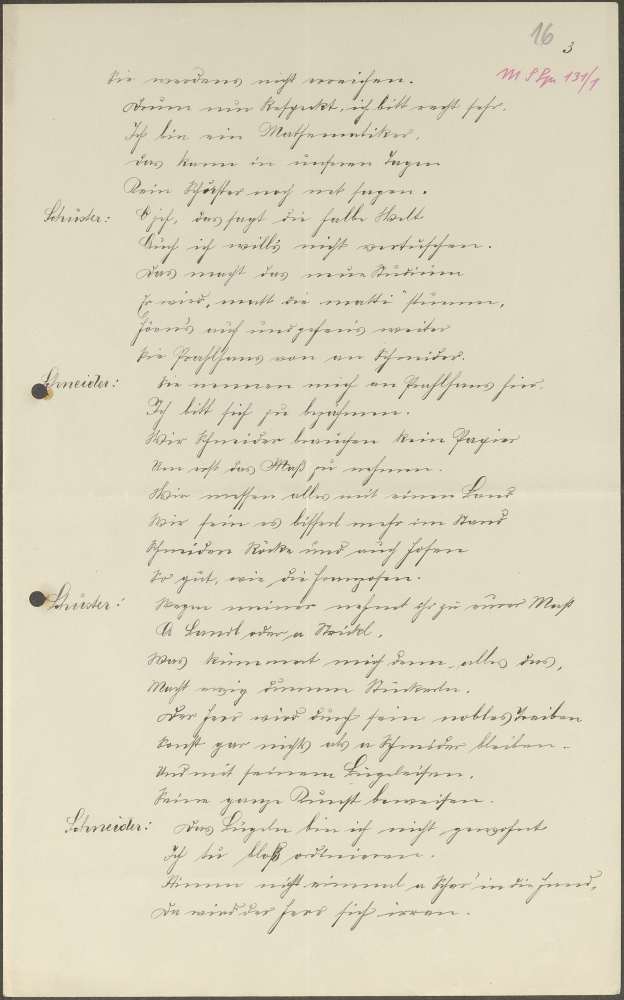 16
3
M S Gp 131/1
Sie werdens nicht erreichen.
Drum nur Respekt, ich bitt recht sehr.
Ich bin ein Mathematiker.
Das kann in unseren Tagen
Kein Schuster noch net sagen.
Schuster: O jeh, das sagt die halbe Welt
Auch ich will's nicht vertuschen.
Das macht das neue Studium
Er wird, matt die matti stumm,
Hörens auf und gehens weiter
Sie Prahlhans von an Schneider.
Schneider: Sie nennen mich an Prahlhans hier.
Ich bitt sich zu bezähmen.
Wir Schneider brauchen kein Papier
Um erst das Maß zu nehmen.
Wir messen alles mit einem Band
Wir sein es bisserl mehr im Stand
Schneidern Röcke und auch Hosen
So gut, wie die Franzosen.
Schuster: Wegen meiner nehmt ihr zu eurer Maß
A Bandl oder a Strickl.
Was kümmert mich denn alles das,
Macht ewig dumme Stückeln.
Der Herr wird durch sein nobles Treiben
Sonst gar nichts als a Schneider bleiben.
Und mit seinem Bügeleisen.
Seine ganze Kunst beweisen.
Schneider: Das Bügeln bin ich nicht gewohnt
Ich tu bloß ordinieren.
Nimm nicht einmal a Scher' in die Hand,
Da wird der Herr sich irren.